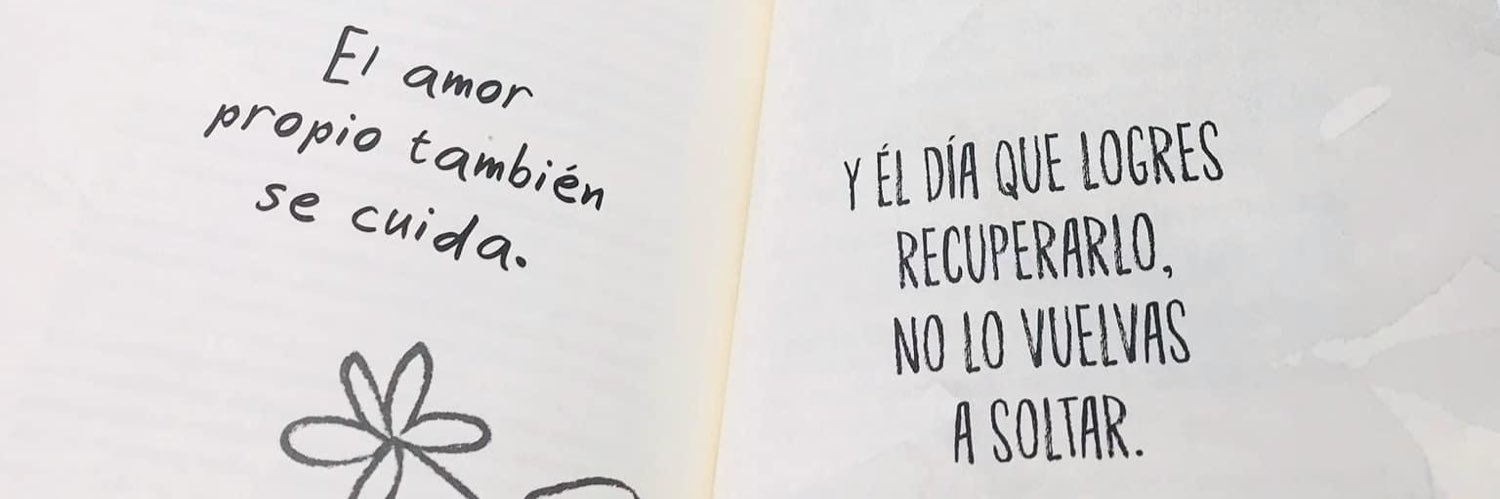 El amor
propio también
se cuida.
Y ÉL DÍA QUE LOGRES
RECUPERARLO,
NO LO VUELVAS
A SOLTAR.